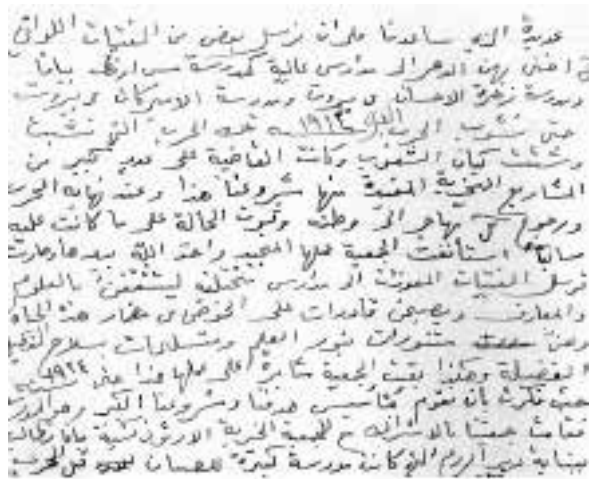 عديدة الذي ساعدنا على ان نرسل بعض من الفتيات اللواتي
اخنى بهن الدهر الى مدارس عالية كمدرسة مس
ومدرسة زهرة الاحسان في بيروت ومدرسة الاميركان في بيروت
حتى نشوب الحرب ١٩١٤ تلك الحرب التي نشبت
وشتت كيان الشعوب وكانت القاضية على عدد كبير من
المشاريع الخيرية المفيدة منها مشروعنا هذا وعند نهاية الحرب
ورجوع كل مهاجر الى وطنه الحالة على ما كانت عليه
سابقا استأنفت الجمعية عملها المجيد واخذ الله بيدها وصارت
ترسل الفتيات المعوزات الى مدارس مختلفة ليتثقفن بالعلوم
والمعارف ويصبحن قادرات على الخوض في غمار هذه الحياة
وهن متنورات بنور العلم ومتسلحات بسلاح
الفضيلة وهكذا بقيت الجمعية مثابرة على عملها هذا حتى سنة ١٩٢٤
حيث فكرت بأن تقوم بتأسيس هدفنا ومشروعنا الكبير وهو المدرسة
فقامت جمعيتنا بالاشتراك مع الجمعية الخيرية الارثوذكسية
ببناية دير الروم التي كانت مدرسة كبيرة للصبيان قبل الحرب